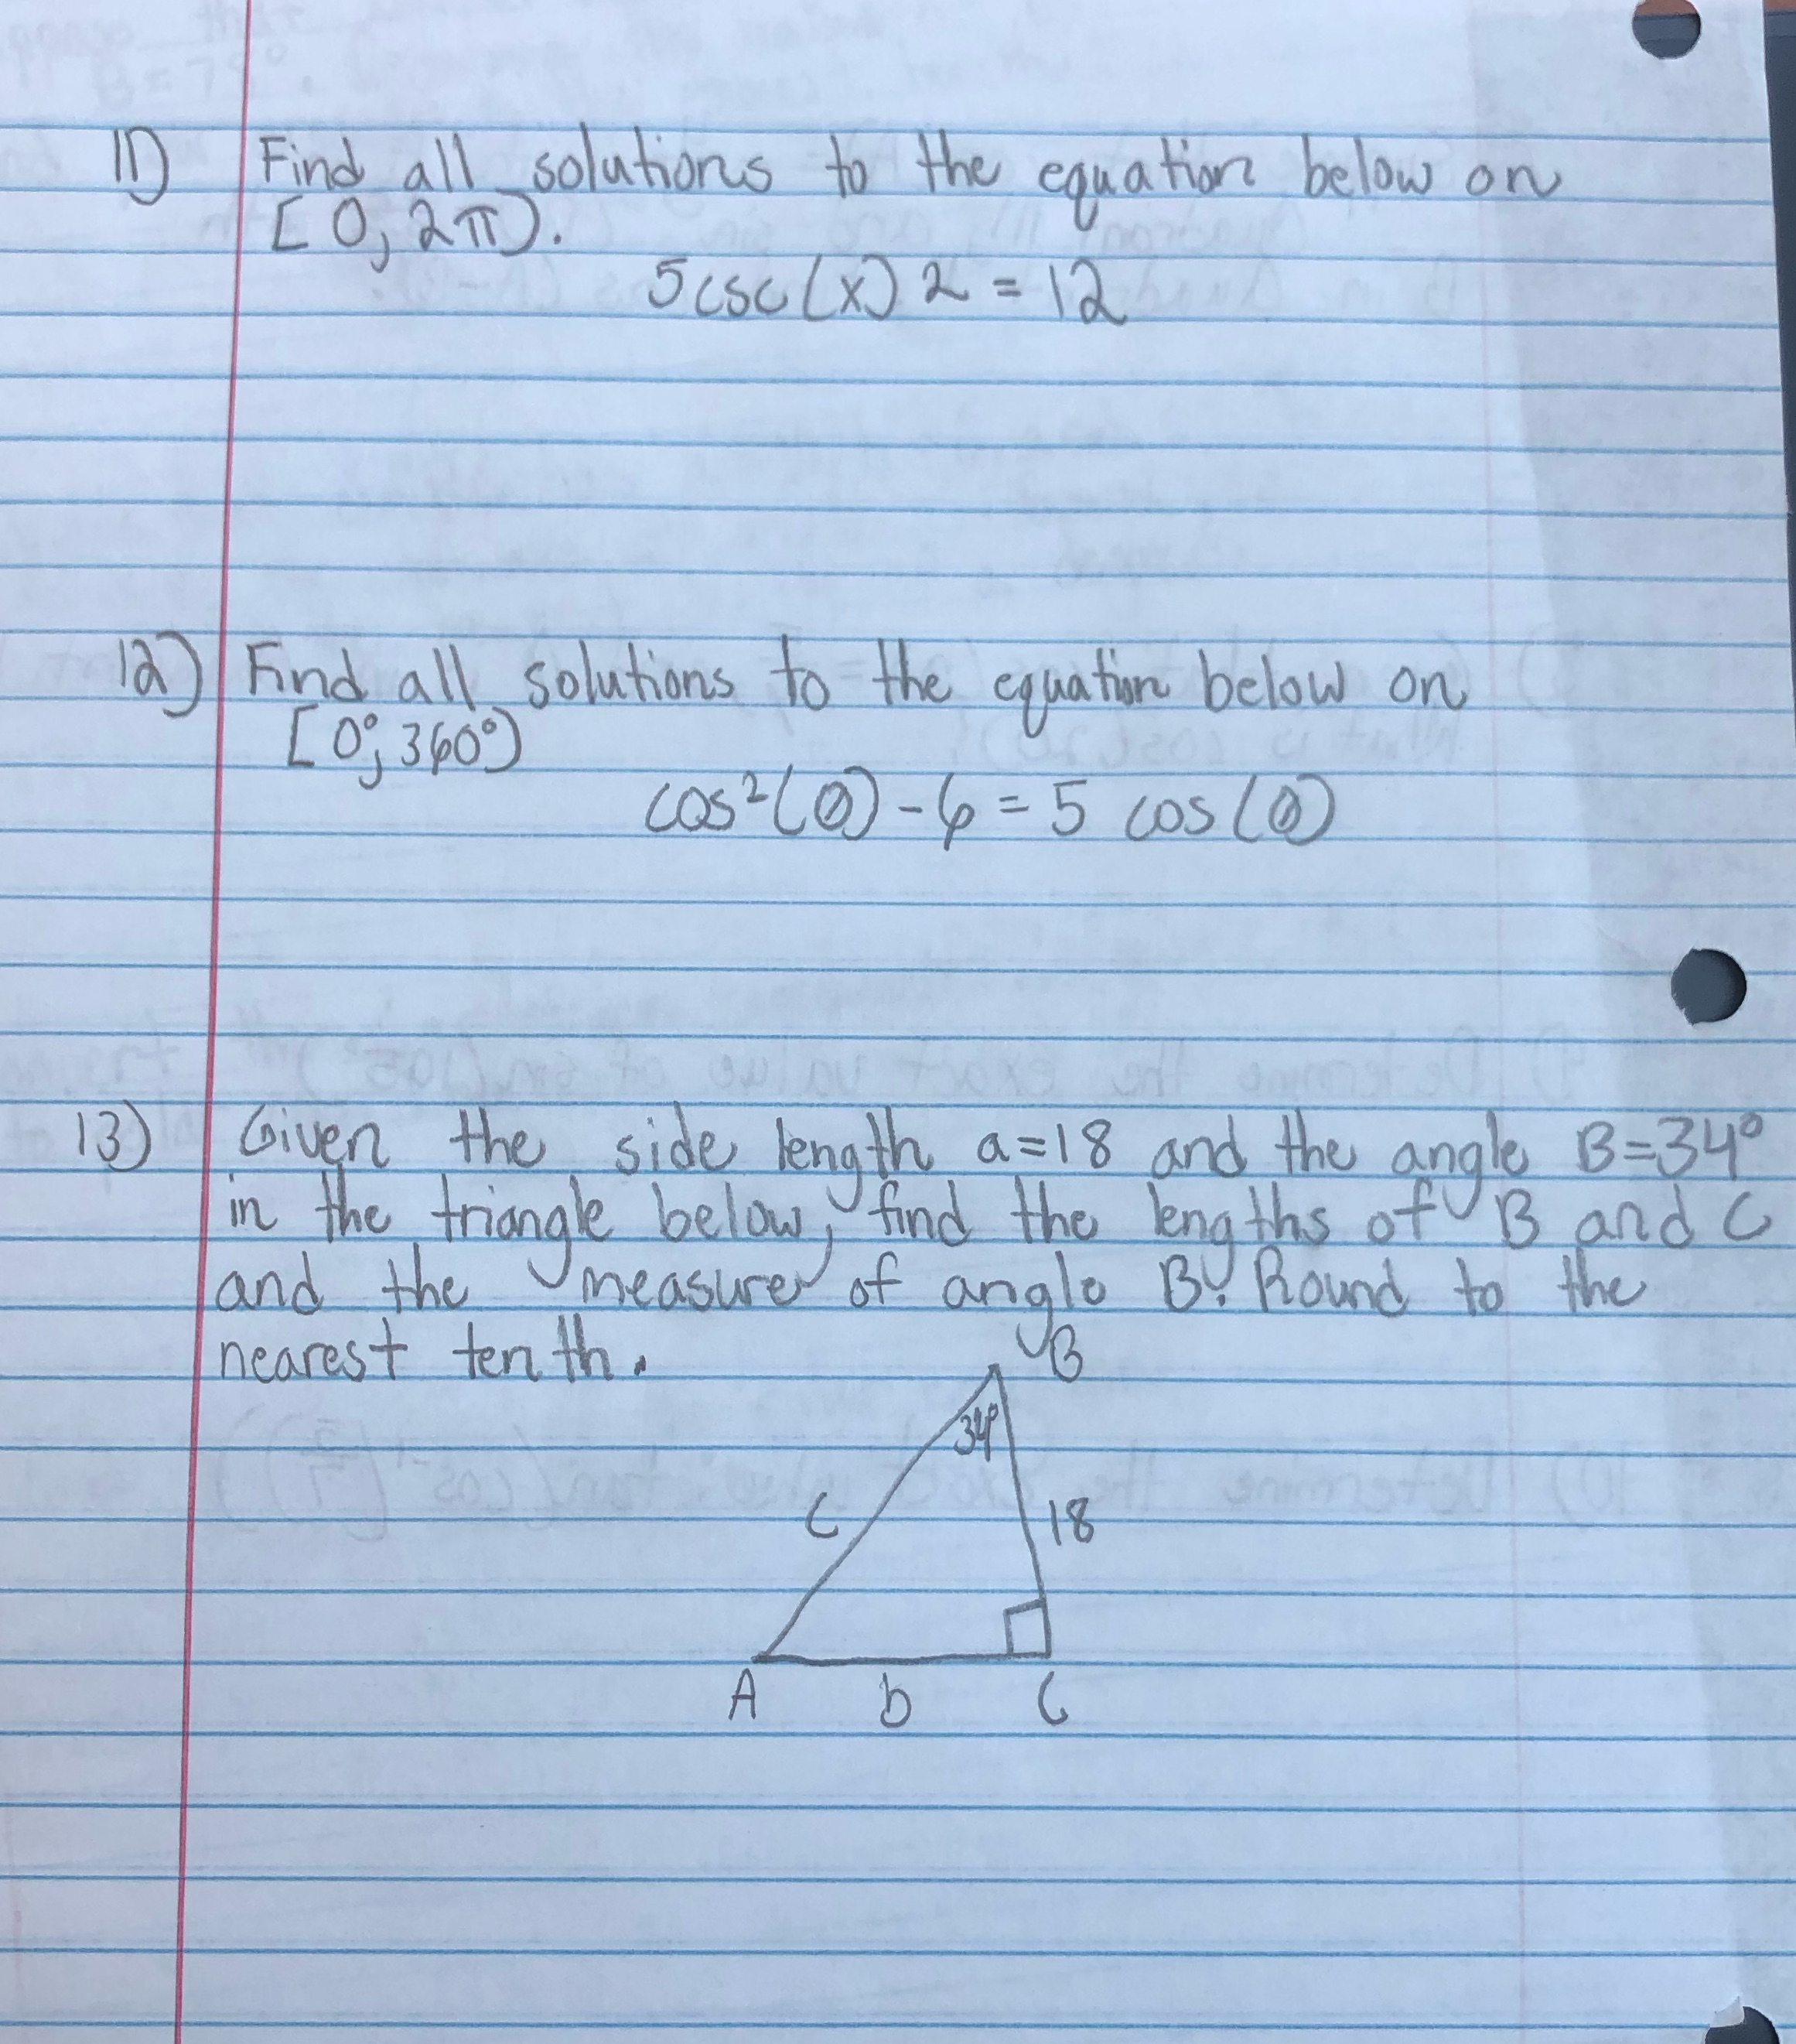 11) Find all solutions to the equation below on
[0, 2π).
5csc(x) 2 = 12
12) Find all solutions to the equation below on
[0°, 360°)
cos²(θ) - 6 = 5 cos(θ)
13) Given the side length a=18 and the angle B=34°
in the triangle below, find the lengths of B and C
and the measure of angle B. Round to the
nearest tenth.
B
34°
C
18
A b C